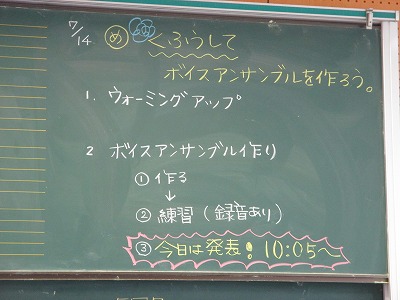 7/14 め くふうして
ボイスアンサンブルを作ろう。
1. ウォーミングアップ
2 ボイスアンサンブル作り
① 作る
↓
② 練習(録音あり)
③ 今日は発表! 10:05〜